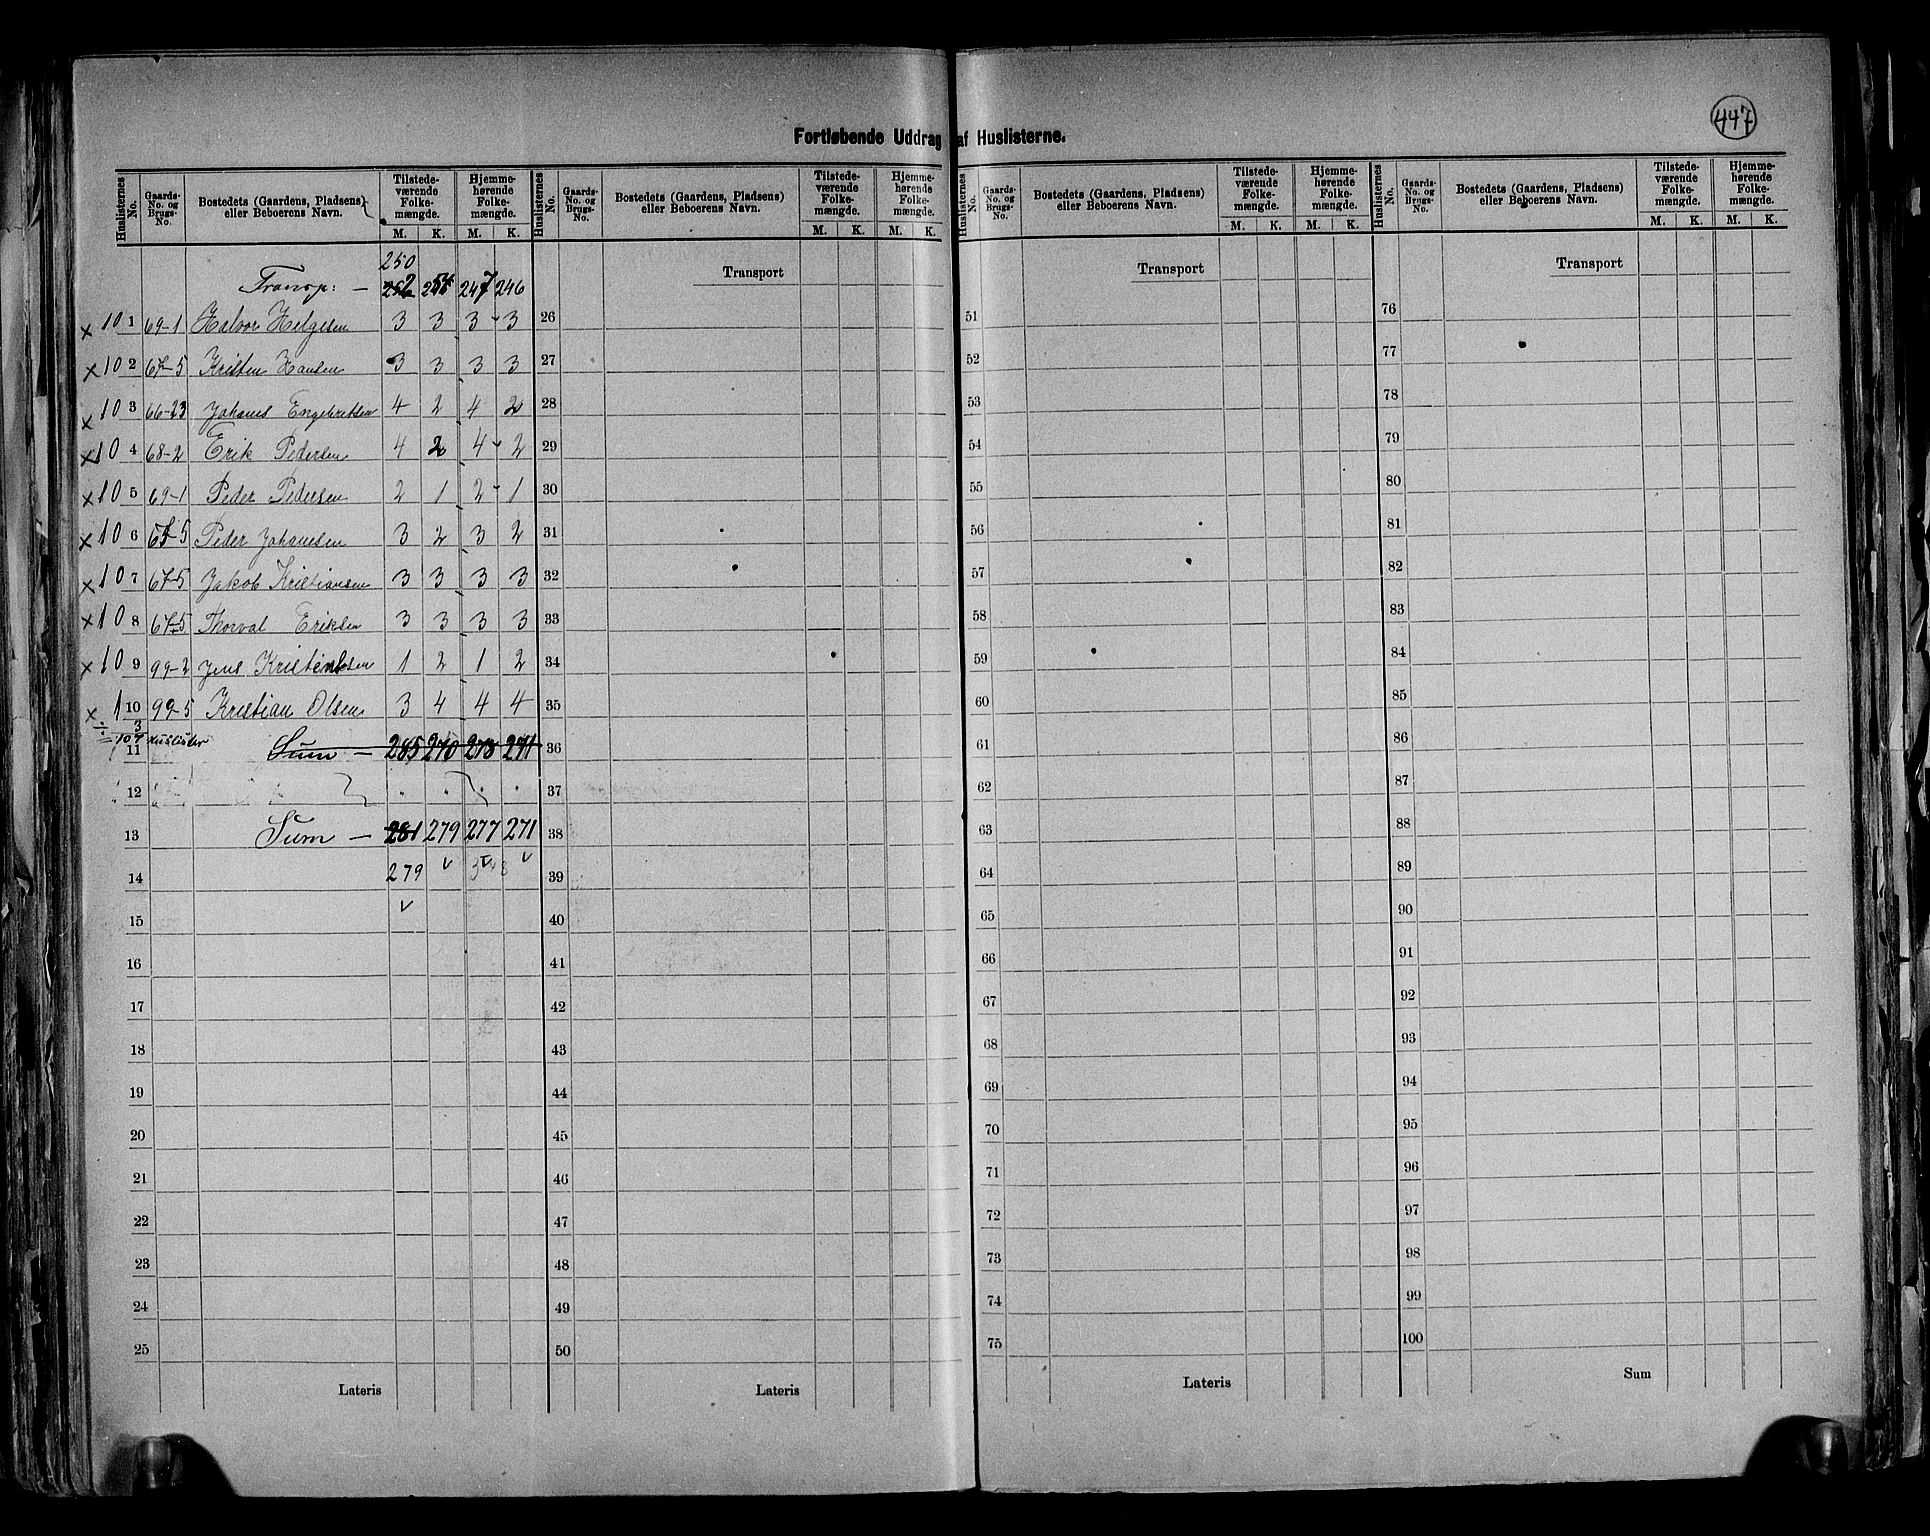 447
Fortløbende Uddrag af Huslisterne.
Huslisternes No. | Gaards-No. og Brugs-No. | Bostedets (Gaardens, Pladsens) eller Beboerens Navn. | Tilstedeværende Folkemængde. M. K. | Hjemmehørende Folkemængde. M. K.
Huslisternes No. | Gaards-No. og Brugs-No. | Bostedets (Gaardens, Pladsens) eller Beboerens Navn. | Tilstedeværende Folkemængde. M. K. | Hjemmehørende Folkemængde. M. K.
Huslisternes No. | Gaards-No. og Brugs-No. | Bostedets (Gaardens, Pladsens) eller Beboerens Navn. | Tilstedeværende Folkemængde. M. K. | Hjemmehørende Folkemængde. M. K.
Huslisternes No. | Gaards-No. og Brugs-No. | Bostedets (Gaardens, Pladsens) eller Beboerens Navn. | Tilstedeværende Folkemængde. M. K. | Hjemmehørende Folkemængde. M. K.
250
Transp: — 247 246
x 10 1 69-1 Halvor Helgesen 3 3 3 3
x 10 2 67-5 Kristen Hansen 3 3 3 3
x 10 3 66-23 Johanes Engebretsen 4 2 4 2
x 10 4 68-2 Erik Pedersen 4 2 4 2
x 10 5 69-1 Peder Pedersen 2 1 2 1
x 10 6 67-5 Peder Johanesen 3 2 3 2
x 10 7 67-5 Jakob Kristiansen 3 3 3 3
x 10 8 67-5 Thorval Eriksen 3 3 3 3
x 10 9 99-2 Jens Kristensen 1 2 1 2
x 1 10 99-5 Kristian Olsen 3 4 4 4
÷ 3
= 107 Huslister
11 Sum — 285 270 278 271
12
13 Sum — 281 279 277 271
14 279 548
15
16
17
18
19
20
21
22
23
24
25
Lateris
Transport
26
27
28
29
30
31
32
33
34
35
36
37
38
39
40
41
42
43
44
45
46
47
48
49
50
Lateris
Transport
51
52
53
54
55
56
57
58
59
60
61
62
63
64
65
66
67
68
69
70
71
72
73
74
75
Lateris
Transport
76
77
78
79
80
81
82
83
84
85
86
87
88
89
90
91
92
93
94
95
96
97
98
99
100
Sum